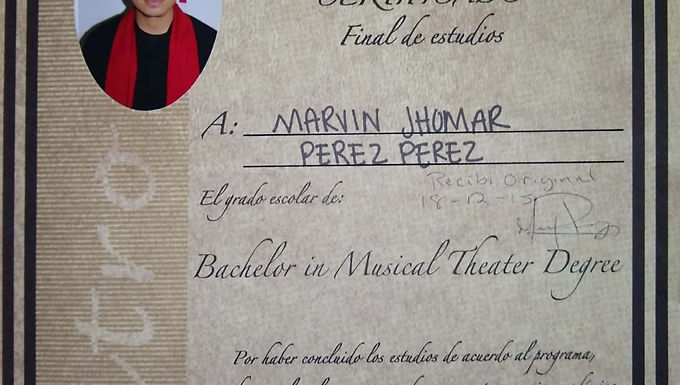 CERTIFICADO
Final de estudios
A: MARVIN JHOMAR
PEREZ PEREZ
Recibi Original
18-12-15
El grado escolar de:
Bachelor in Musical Theater Degree
Por haber concluido los estudios de acuerdo al programa,
tro